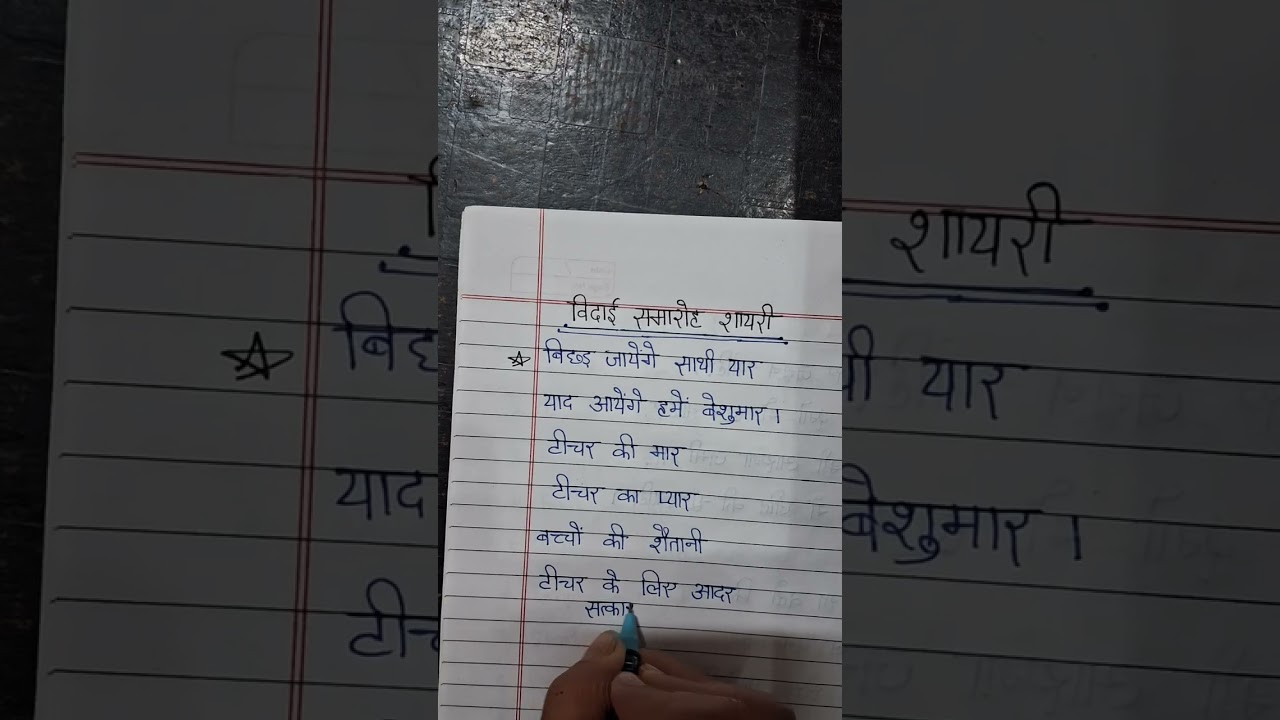 विदाई समारोह शायरी
बिछड़ जायेंगे साथी यार
याद आयेंगे हमें बेशुमार।
टीचर की मार
टीचर का प्यार
बच्चों की शैतानी
टीचर के लिए आदर
सत्कार